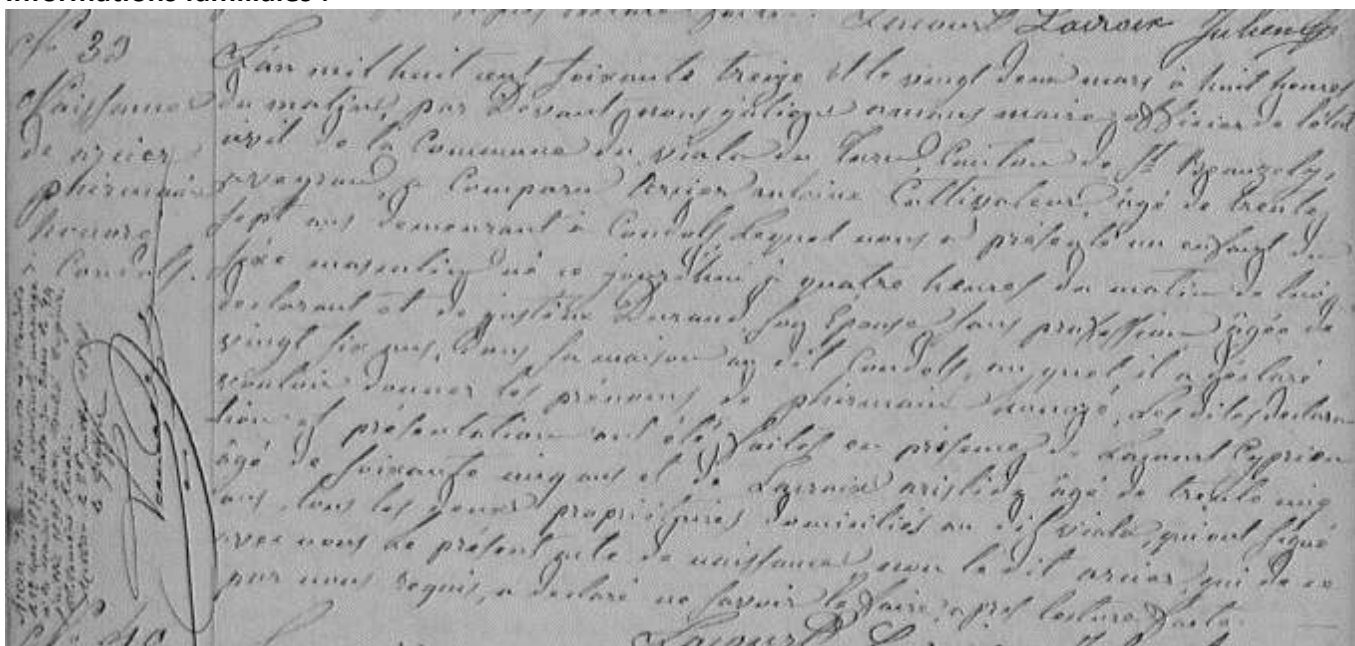 Informations familiales :
Lacourt Lacroix Julien
N° 39
Naissance
de arnier
phirmain
honoré
à Candols.
L'an mil huit cent soixante treize et le vingt deux mars à huit heures
du matin, par Devant nous julien amans maire officier de l'état
civil de la Commune du viala du Tarn, Canton de St Beauzely,
aveyron, a Comparu Arnier antoine Cultivateur, âgé de trente
sept ans demeurant à Candols, Lequel nous a présenté un enfant du
sexe masculin né ce jourd'hui à quatre heures du matin de lui
declarant et de justine Durand son Epouse sans profession âgée de
vingt six ans, dans sa maison au dit Candols, au quel il a declaré
vouloir donner les prénoms de phirmain honoré, Les dites declara
tion et présentation ont été faites en présence de Lacourt Cyprien
âgé de soixante cinq ans et de Lacroix aristide âgé de trente cinq
ans, tous les deux propriétaires domiciliés au dit viala, qui ont signé
avec nous Le présent acte de naissance non le dit arnier qui de ce
par nous requis, a declaré ne savoir le faire, après lecture faite.
N° 40
Lacourt